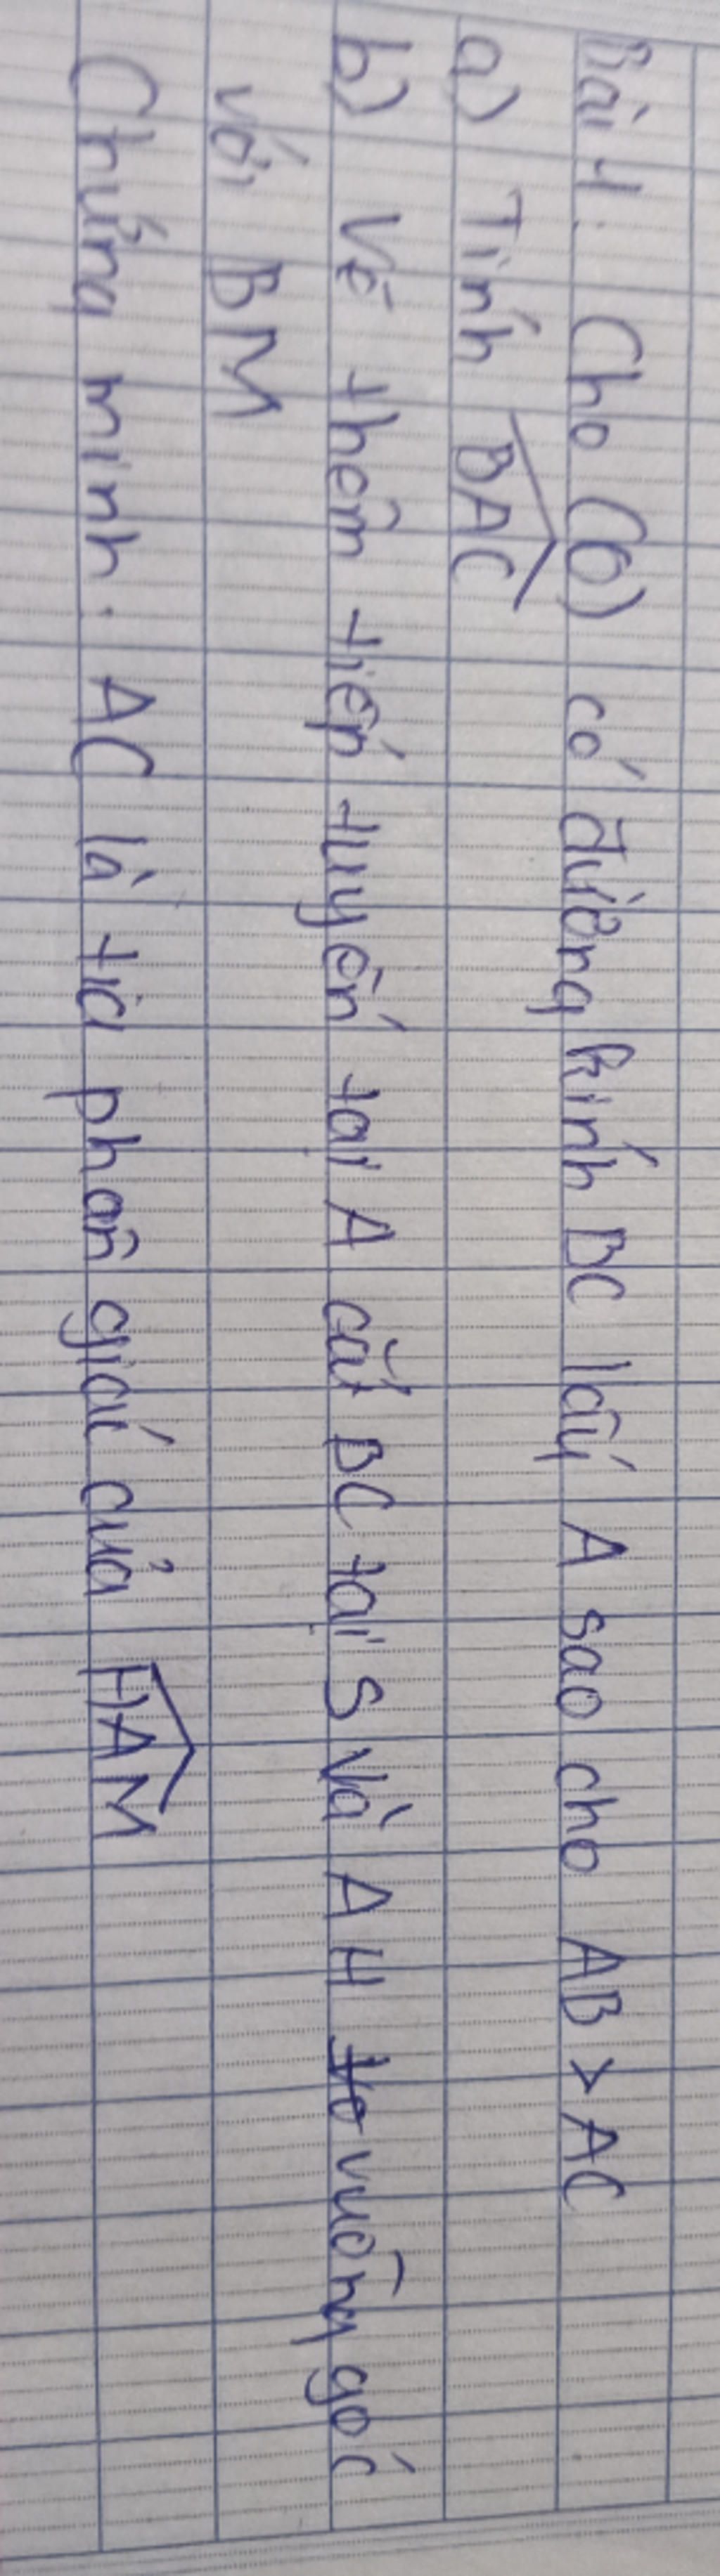 Bài 1. Cho (O) có đường kính BC lấy A sao cho AB > AC
a) Tính BAC
b) Vẽ thêm tiếp tuyến tại A cắt BC tại S và AH vuông góc
với BM
Chứng minh: AC là tia phân giác của HAM